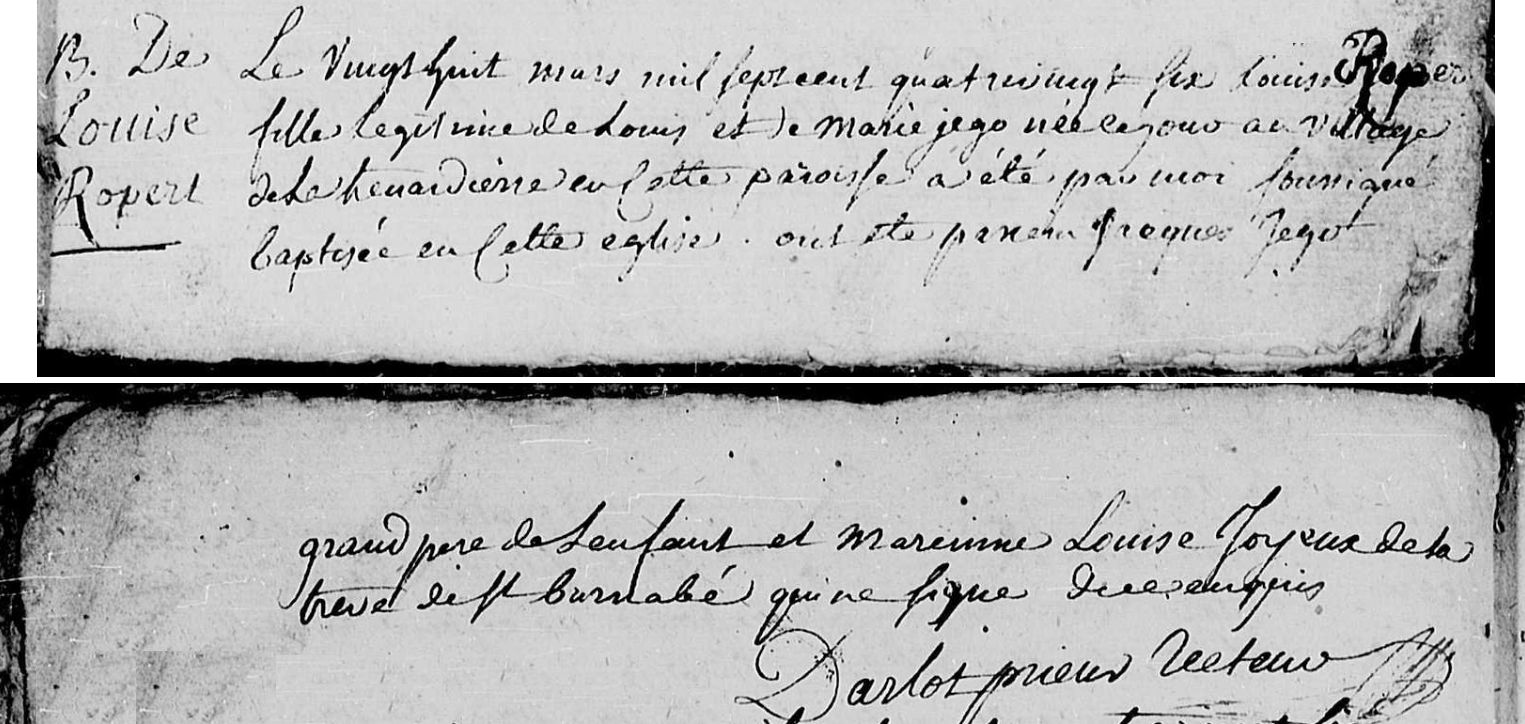 B. De
Louise
Ropert
Le Vingt huit mars mil sept cent quatrevingt six Louise Roper
fille legitime de Louis et de Marie jego née ce jour au village
de la henardierre en Cette paroisse a été par moi soussigné
baptisée en Cette eglise. ont ete parein Jacques Jego
grand pere de Lenfant et mareinne Louise Joyeux de la
treve de st barnabé qui ne signe de ce enquis
Darlot prieur Recteur